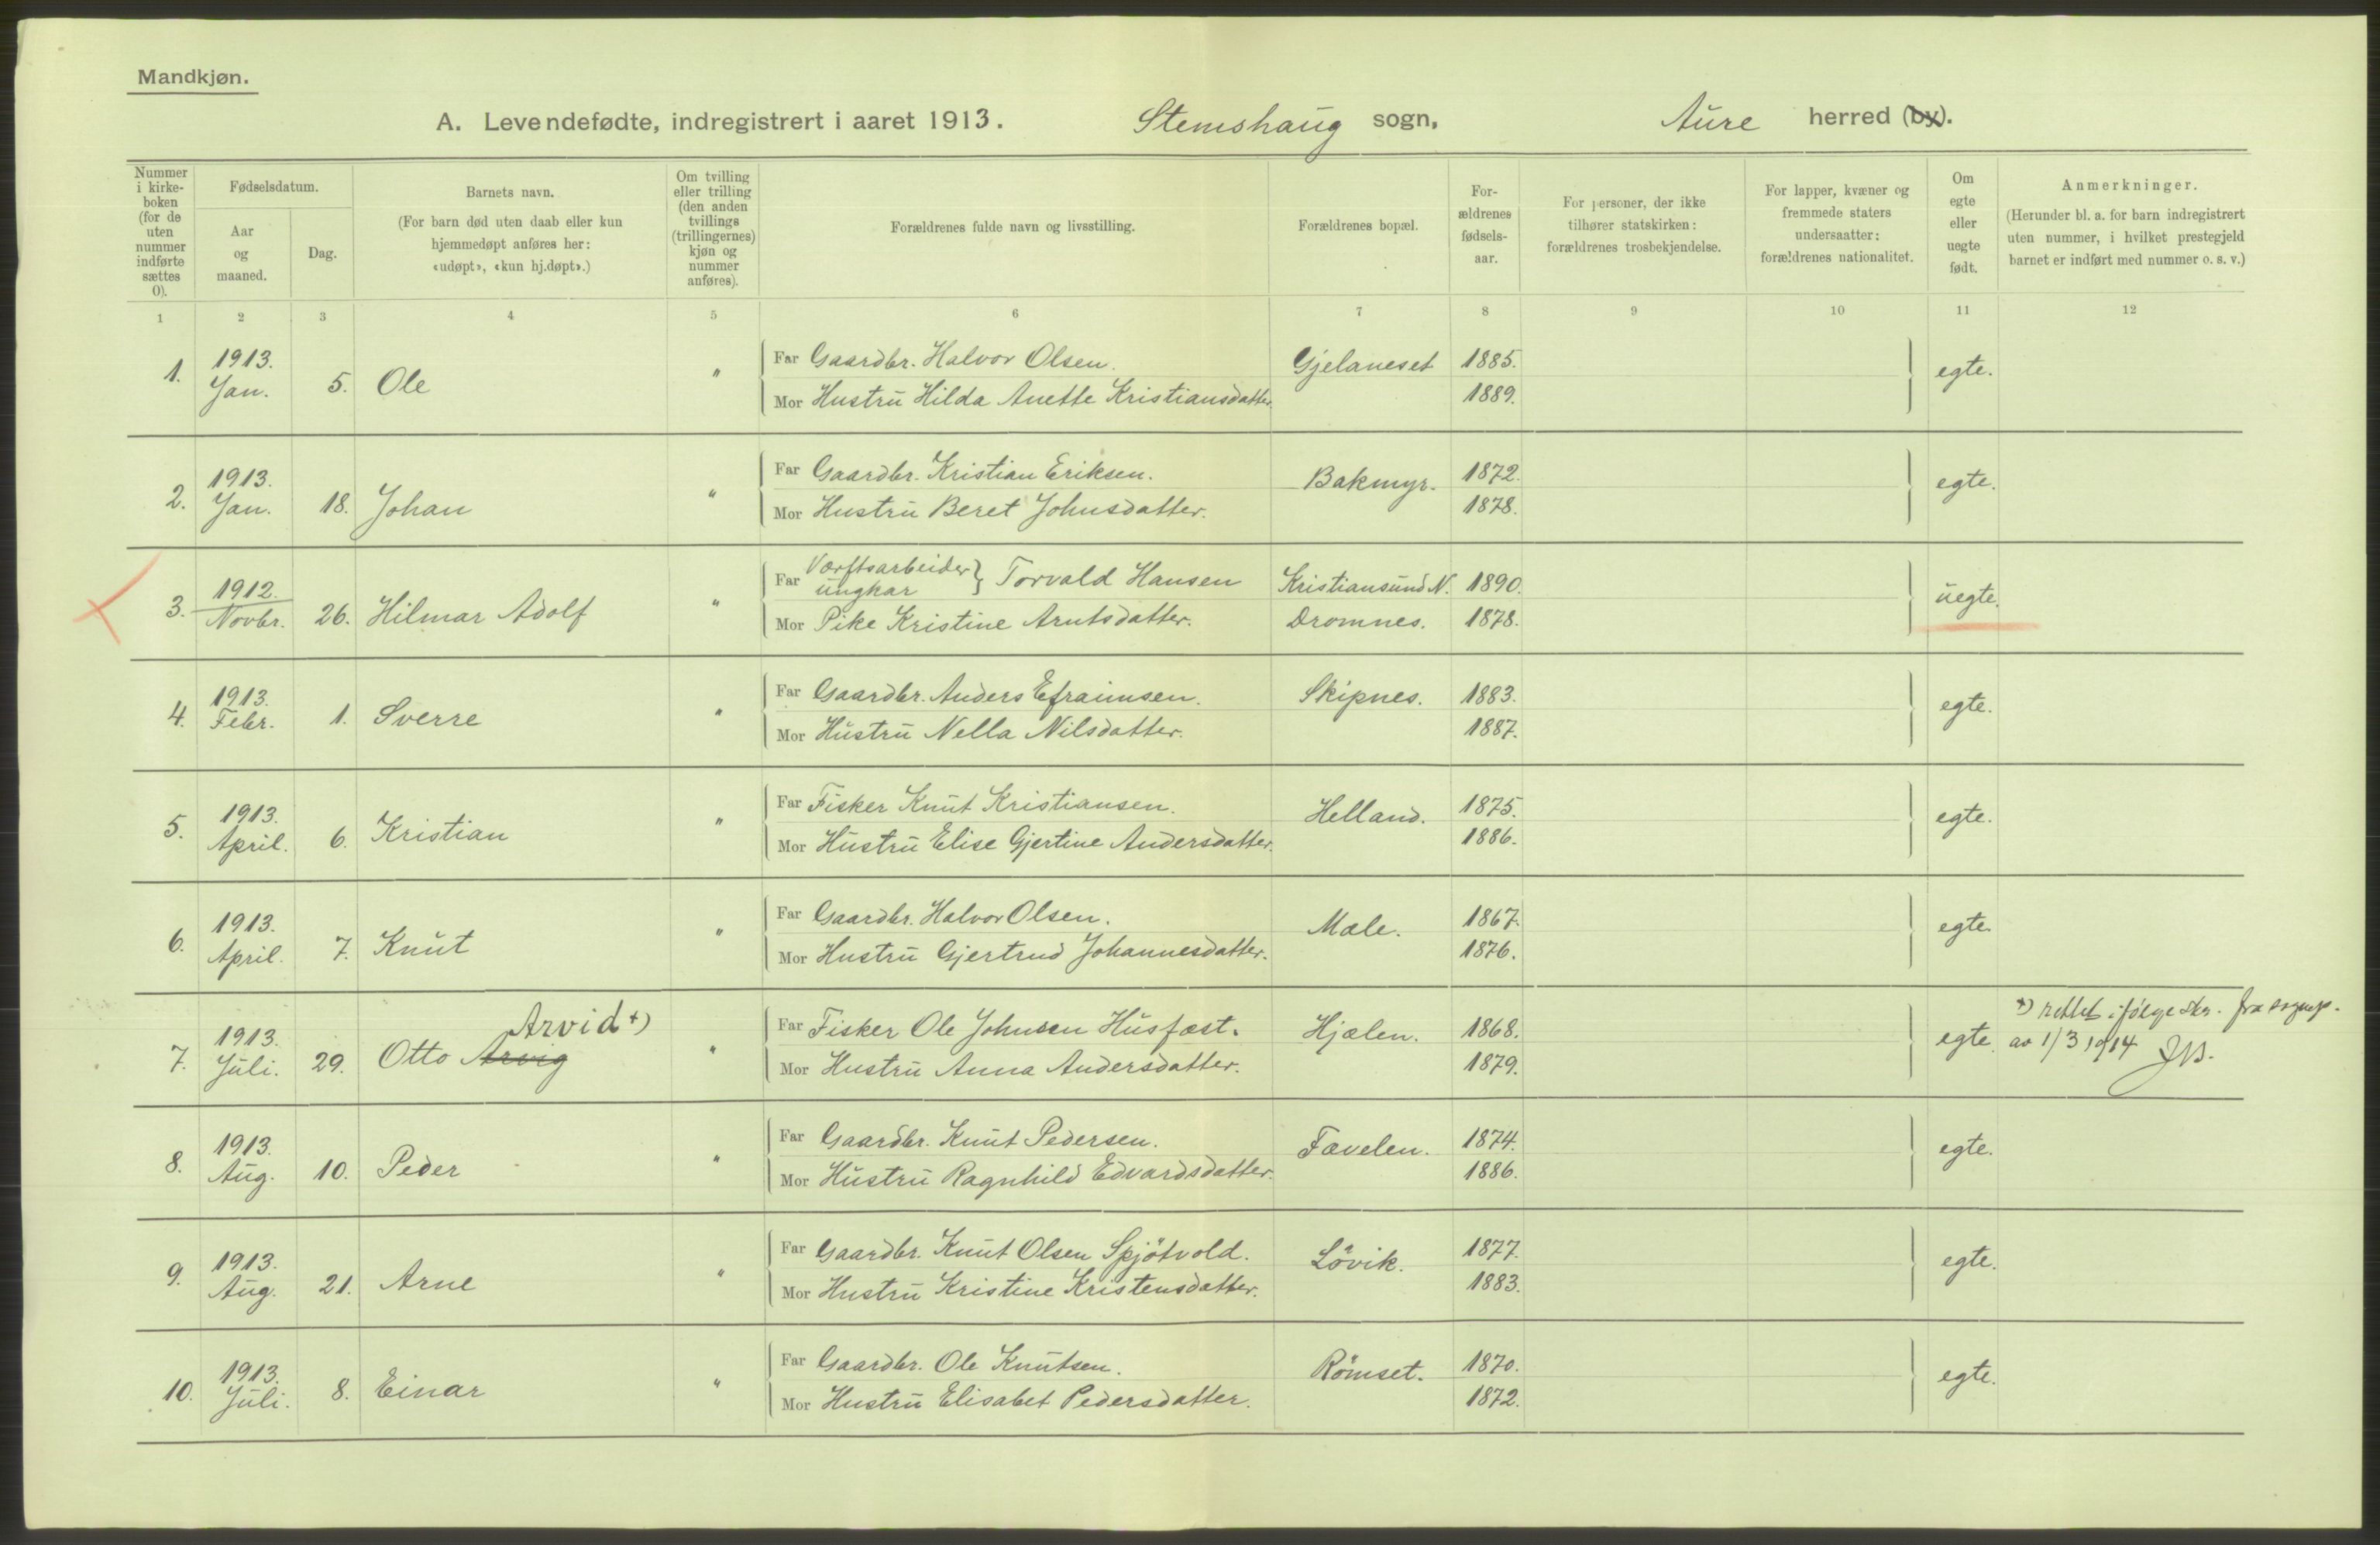 Mandkjøn.
A. Levendefødte, indregistrert i aaret 1913. Stemshaug sogn, Aure herred (by).
Nummer i kirkeboken (for de uten nummer indførte sættes 0).
Fødselsdatum.
Aar og maaned.
Dag.
Barnets navn.
(For barn død uten daab eller kun hjemmedøpt anføres her: «udøpt», «kun hj.døpt».)
Om tvilling eller trilling (den anden tvillings (trillingernes) kjøn og nummer anføres).
Forældrenes fulde navn og livsstilling.
Forældrenes bopæl.
Forældrenes fødselsaar.
For personer, der ikke tilhører statskirken: forældrenes trosbekjendelse.
For lapper, kvæner og fremmede staters undersaatter: forældrenes nationalitet.
Om egte eller uegte født.
Anmerkninger.
(Herunder bl. a. for barn indregistrert uten nummer, i hvilket prestegjeld barnet er indført med nummer o. s. v.)
1 2 3 4 5 6 7 8 9 10 11 12
1. 1913. Jan. 5. Ole " Far Gaardbr. Halvor Olsen. Gjelaneset 1885. egte.
Mor Hustru Hilda Anette Kristiansdatter. 1889.
2. 1913. Jan. 18. Johan " Far Gaardbr. Kristian Eriksen. Bakmyr. 1872. egte.
Mor Hustru Beret Johnsdatter. 1878.
3. 1912. Novbr. 26. Hilmar Adolf " Far Værftsarbeider ungkar } Torvald Hansen Kristiansund N. 1890. uegte.
Mor Pike Kristine Arntsdatter. Dromnes. 1878.
4. 1913. Febr. 1. Sverre " Far Gaardbr. Anders Efraimsen. Skipnes. 1883. egte.
Mor Hustru Nella Nilsdatter. 1887.
5. 1913. April. 6. Kristian " Far Fisker Knut Kristiansen. Helland. 1875. egte.
Mor Hustru Elise Gjertine Andersdatter. 1886.
6. 1913. April. 7. Knut " Far Gaardbr. Halvor Olsen. Male. 1867. egte.
Mor Hustru Gjertrud Johannesdatter. 1876.
7. 1913. Juli. 29. Otto Arvig Arvid +) " Far Fisker Ole Johnsen Husfæst. Hjælen. 1868. egte. +) rettet ifølge skr. fra sognep.
Mor Hustru Anna Andersdatter. 1879. av 1/3 1914
8. 1913. Aug. 10. Peder " Far Gaardbr. Knut Pedersen. Fævelen. 1874. egte.
Mor Hustru Ragnhild Edvardsdatter. 1886.
9. 1913. Aug. 21. Arne " Far Gaardbr. Knut Olsen Spjötvold. Lövik. 1877. egte.
Mor Hustru Kristine Kristensdatter. 1883.
10. 1913. Juli. 8. Einar " Far Gaardbr. Ole Knutsen. Römset. 1870. egte.
Mor Hustru Elisabet Pedersdatter. 1872.